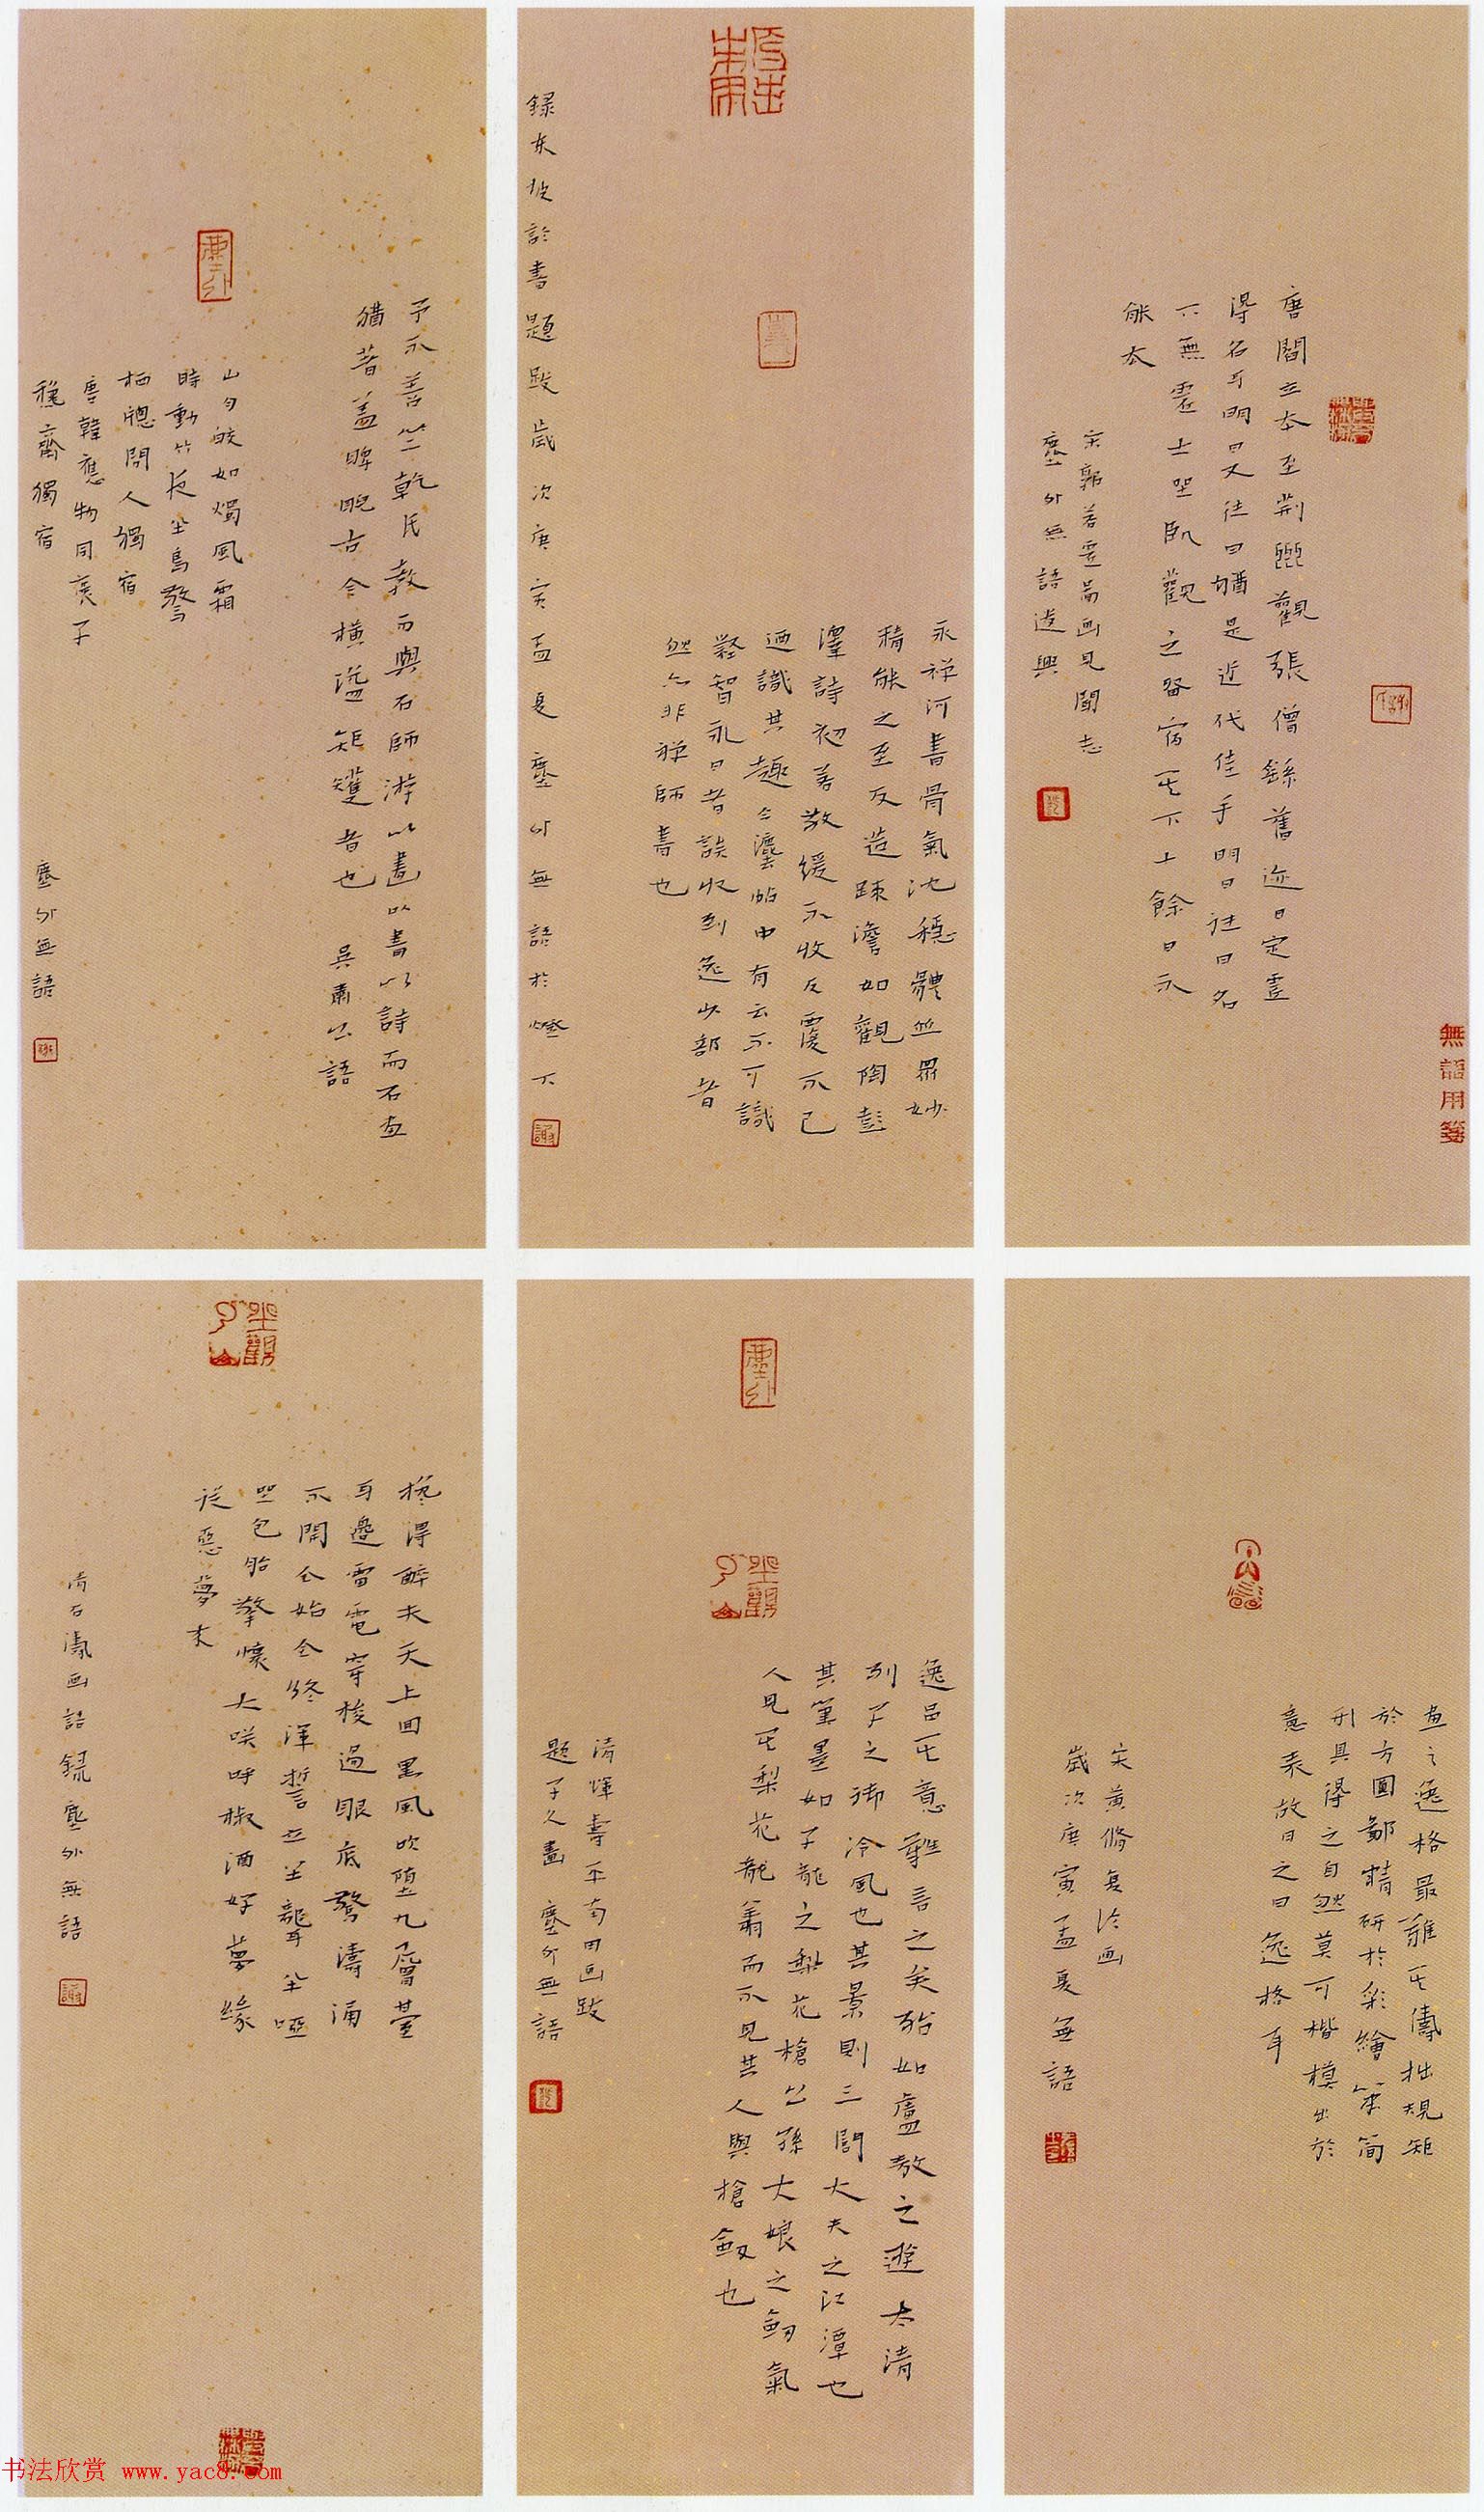 唐閻立本至荊州觀張僧繇舊迹曰定虛
得名耳明日又往曰猶是近代佳手明日往曰名
下無虛士坐臥觀之留宿其下十餘日不
能去
宋郭若虛圖画見聞志
塵外無語遣興
無語用箋
永禅河書骨氣沈穩體並眾妙
精能之至反造疎澹如觀陶彭
澤詩初若散緩不收反覆不已
迺識其趣今法帖中有云不可識
智永曰者誤收到逸少部者
然亦非禅師書也
錄東坡論書題跋歲次庚寅孟夏塵外無語於燈下
塵外
予不善竺乾氏教而與石師游以畫以書以詩而石画
猶著蓋睥睨古今橫溢矩矱者也 吳肅公語
山月皎如燭風霜
時動竹夜半鳥驚
栖窗間人獨宿
唐韓應物同褎子
穐齋獨宿
塵外無語
画之逸格最難其儔拙規矩
於方圓鄙精研於彩繪筆簡
形具得之自然莫可楷模出於
意表故目之曰逸格耳
宋黃脩复論画
歲次庚寅孟夏無語
塵外
逸品其意難言之矣殆如盧敖之遊太清
列子之御冷風也其景則三閭大夫之江潭也
其筆墨如子龍之梨花槍公孫大娘之劍氣
人見其梨花龍翥而不見其人與槍劍也
清惲壽平南田画跋
題子久畫 塵外無語
攙得醉夫天上回黑風吹墮九層臺
耳邊雷電穿梭過眼底驚濤涌
不開今始今終渾誓立半聾半啞
坐包胎擎懷大咲呼椒酒好夢緣
從惡夢来
清石濤画語錄塵外無語
书法欣赏 www.yac8.com